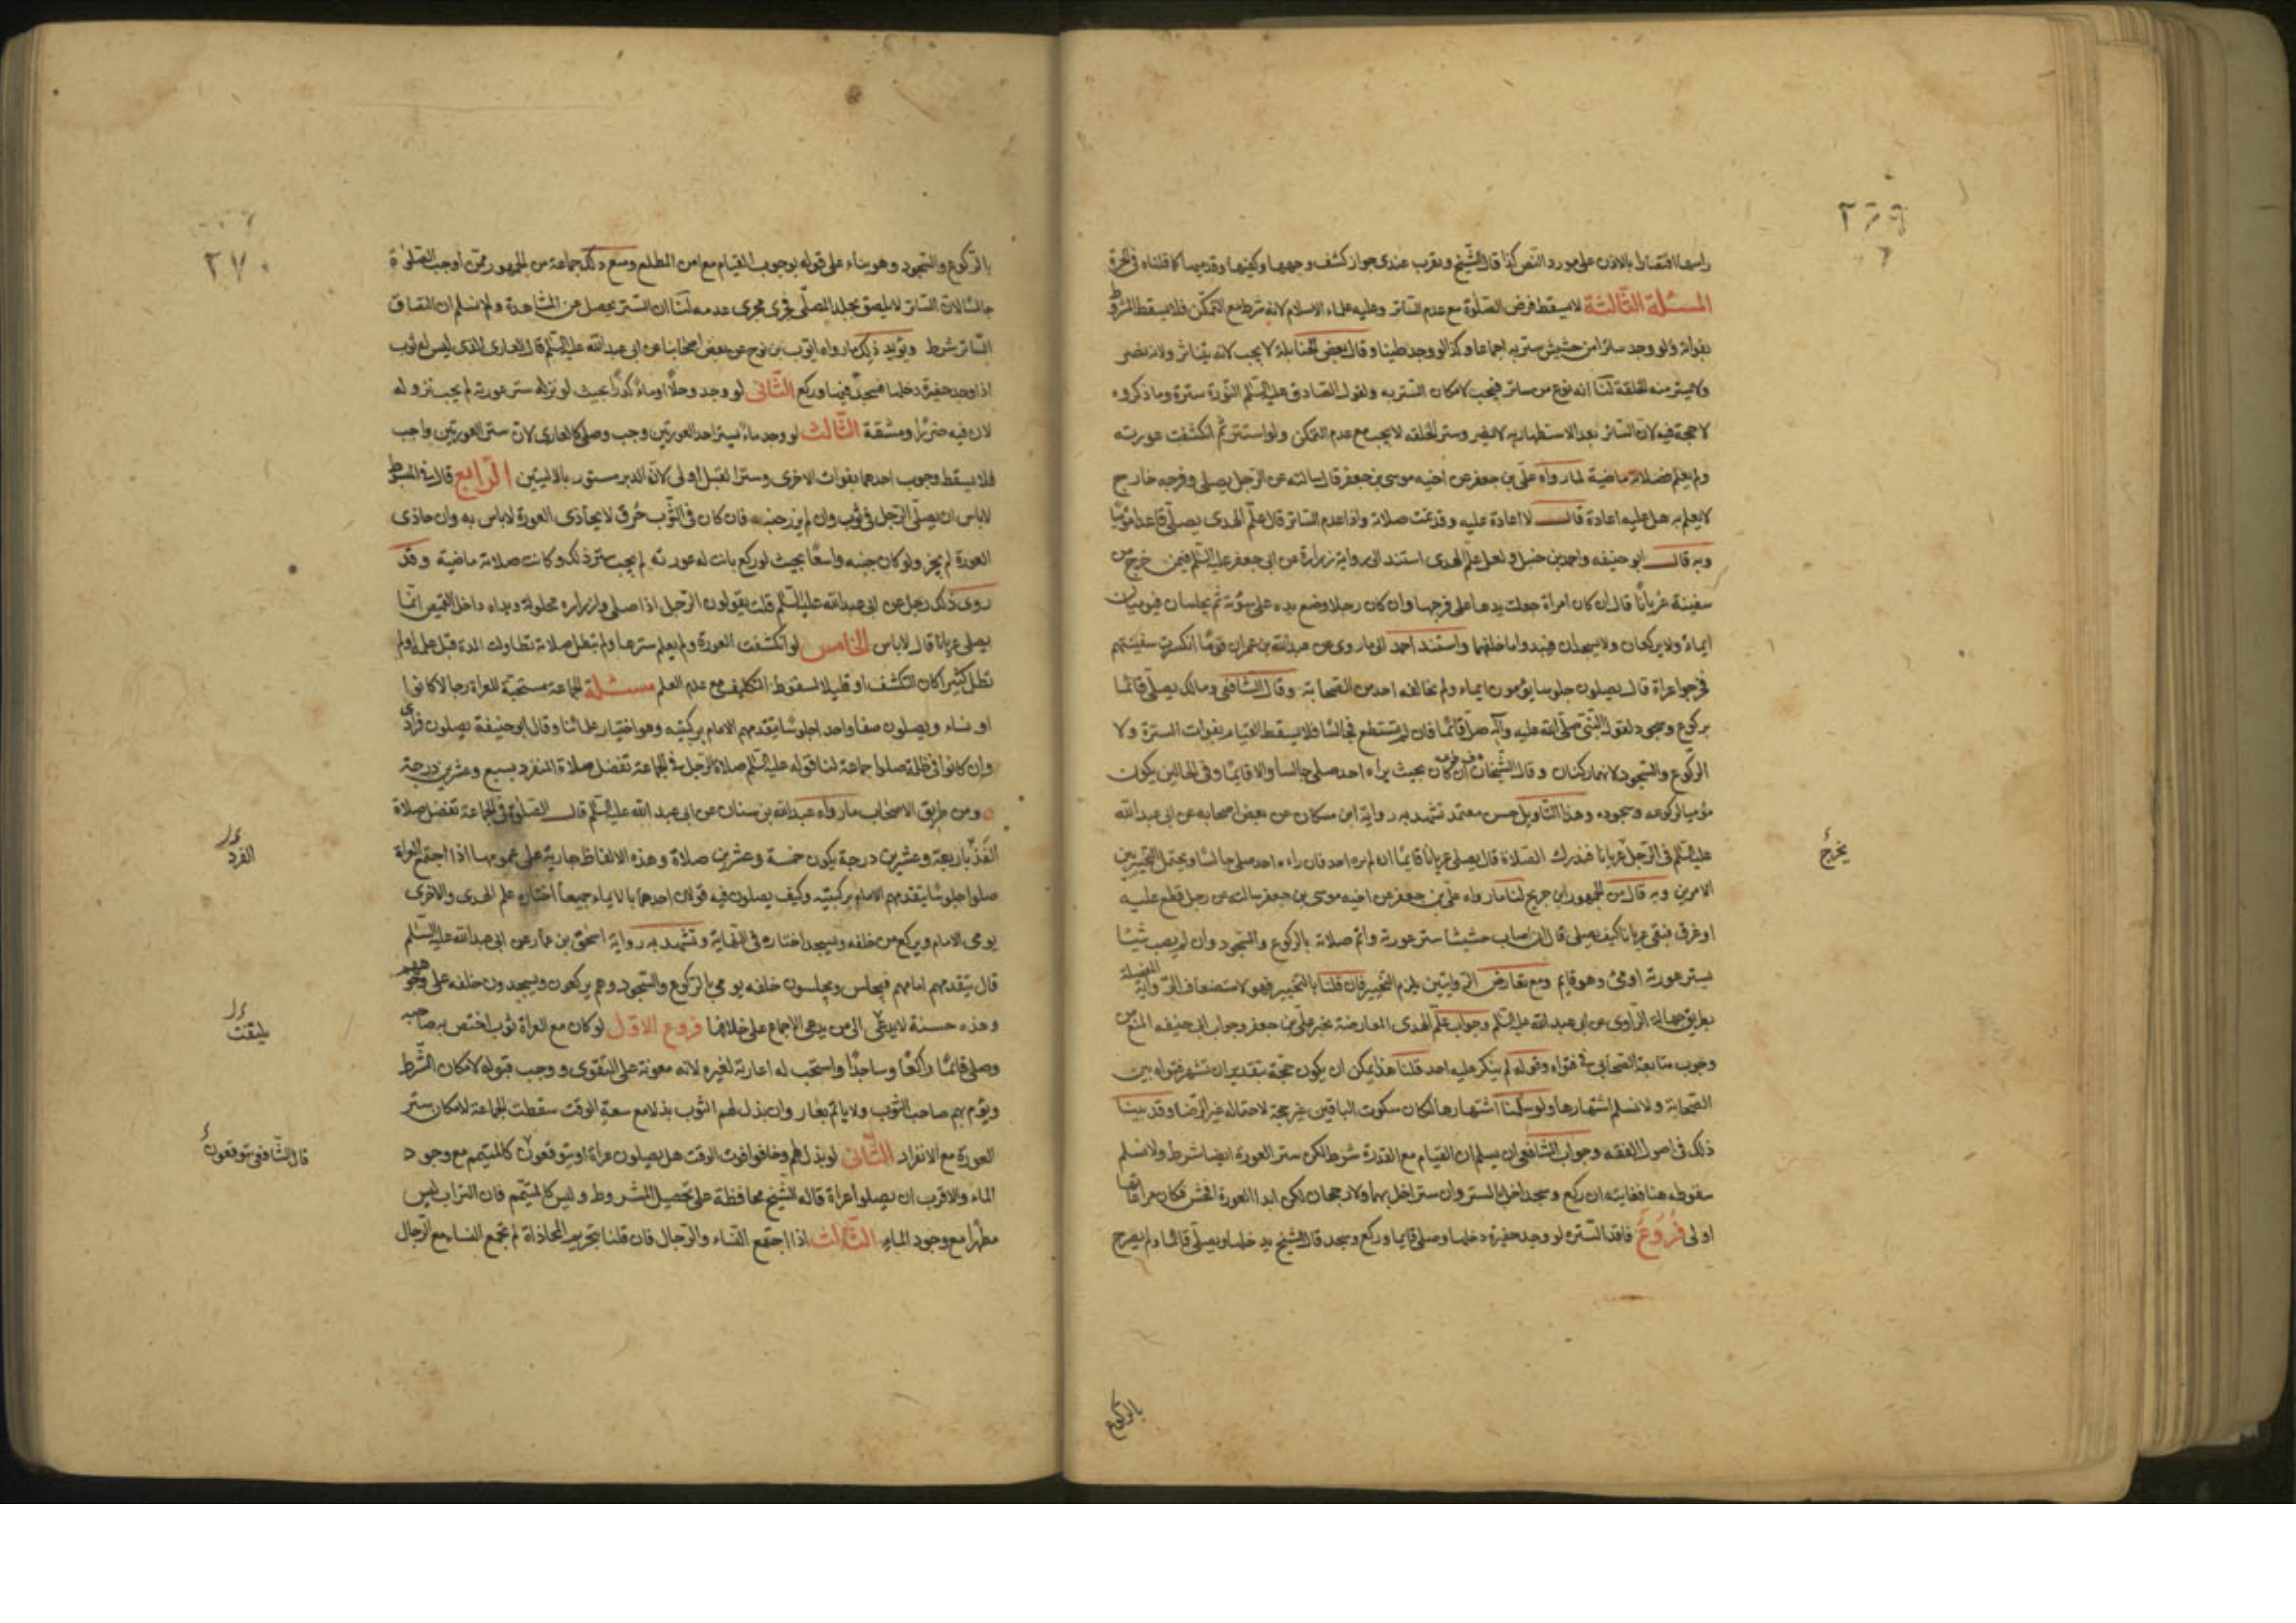 ٢٦٩
راسها اقتصارا بالاذن على مورد النص كذا قال الشيخ ويقرب عندى جواز كشف وجهها وكفيها وقدميها كما قلناه فى الحرة
المسئلة الثالثة لا يسقط فرض الصلوة مع عدم الساتر وعليه علماء الاسلام لانه شرط مع التمكن فلا يسقط المشروط
بفواته ولو وجد ساترا من حشيش ستر به اجماعا وكذا لو وجد طينا وقال بعض الحنابلة لا يجب لانه يتناثر ولانه يضر
ولا يستر منه الخلقة لنا انه نوع من ساتر فيجب لامكان التستر به ولقول الصادق عليه السلم النورة سترة وما ذكروه
لا حجة فيه لان الساتر بعد الاستظهار به لا يضر وستر الخلقه لا يجب مع عدم التمكن ولو استتر ثم انكشفت عورته
ولم يعلم فصلاته ماضية لما رواه على بن جعفر عن اخيه موسى بن جعفر قال سالته عن الرجل يصلى وفرجه خارج
لا يعلم به هل عليه اعادة قال لا اعادة عليه وقد تمت صلاته واذا عدم الساتر قال علم الهدى يصلى قاعدا موميا
وبه قال ابو حنيفه واحمد بن حنبل ولعل علم الهدى استند الى رواية زرارة عن ابى جعفر عليه السلم فيمن خرج من
سفينة عريانا قال ان كان امراة جعلت يدها على فرجها وان كان رجلا وضع يده على سوئته ثم يجلسان فيوميان
ايماء ولا يركعان ولا يسجدان فيبدو ما خلفهما واستند احمد الى ما روى عن عبدالله بن عمر ان قوما انكسرت سفينتهم
فخرجوا عراة قال يصلون جلوسا يؤمون ايماء ولم يخالفه احد من الصحابة وقال الشافعى ومالك يصلى قائما
بركوع وسجود لقول النبى صلى الله عليه واله صل قائما فان لم تستطع فجالسا فلا يسقط القيام بفوات السترة ولا
الركوع والسجود لانهما ركنان وقال الشيخان ان كان بحيث يراه احد صلى جالسا والا قايما وفى الحالين يكون
موميا لركوعه وسجوده وهذا التاويل حسن معتمد تشهد به رواية ابن مسكان عن بعض اصحابه عن ابى عبدالله
عليه السلم فى الرجل عريانا فيدرك الصلاة قال يصلى عريانا قايما ان لم يره احد فان راه احد صلى جالسا ويحتمل التخيير بين
يخرج
الامرين وبه قال من الجمهور ابن جريج لنا ما رواه على بن جعفر عن اخيه موسى بن جعفر سالته عن رجل قطع عليه
او غرق فبقى عريانا كيف يصلى قال ان اصاب حشيشا ستر عورته واتم صلاته بالركوع والسجود وان لم يصب شيئا
يستر عورته اومئ وهو قايم ومع تعارض الروايتين يلزم التخيير فان قلنا بالتخيير فهو لاستضعاف الرواية
بطريق جهالة الراوى عن ابى عبدالله عليه السلم وجواب علم الهدى المعارضة بخبر على بن جعفر وجواب ابى حنيفه المنع من
وجوب متابعة الصحابى فى فتواه وقوله لم ينكر عليه احد قلنا هذا يمكن ان يكون حجة بتقدير ان تشهر فتواه بين
الصحابة ولا نسلم اشتهارها ولو سلمنا اشتهارها لكان سكوت الباقين غير حجة لاحتماله غير الرضا وقد بينا
ذلك فى اصول الفقه وجواب الشافعى ان يسلم ان القيام مع القدرة شرط لكن ستر العورة ايضا شرط ولا نسلم
سقوطه هنا فغايته ان ركع وسجد اخل بالستر وان ستر اخل بهما ولا رجحان لكن ابدا العورة افحش فكان مراعاتها
اولى فروع فاقد السترة لو وجد حفيرة دخلها وصلى قايما وركع وسجد قال الشيخ يدخلها ويصلى قائما ولم يصرح
بالركوع
٢٧٠
بالركوع والسجود وهو بناء على قوله بوجوب القيام مع امن المطلع ومنع ذلك جماعة من الجمهور ممن اوجب الصلوة
جالسا لان الساتر لا يلصق بجلد المصلى فجرى مجرى عدمه لنا ان الستر يحصل عن المشاهدة ولا نسلم ان التصاق
الساتر شرط ويؤيد ذلك ما رواه ايوب بن نوح عن بعض اصحابنا عن ابى عبدالله عليه السلم قال العارى الذى ليس له ثوب
اذا وجد حفيرة دخلها فسجد فيها وركع الثانى لو وجد وحلا او ماء كدرا بحيث لو نزله ستر عورته لم يجب نزوله
لان فيه ضررا ومشقة الثالث لو وجد ما يستر احد العورتين وجب وصلى كالعارى لان ستر العورتين واجب
فلا يسقط وجوب احدهما بفوات الاخرى وستر القبل اولى لان الدبر مستور بالاليتين الرابع قال فى المبسوط
لا باس ان يصلى الرجل فى ثوب وان لم يزر جيبه فان كان فى الثوب خرق لا يحاذى العورة لا باس به وان حاذى
العورة لم يجز ولو كان جيبه واسعا بحيث لو ركع بانت له عورته لم يجب ستر ذلك وكانت صلاته ماضية وقد
روى ذلك رجل عن ابى عبدالله عليه السلم قلت يقولون الرجل اذا صلى وازراره محلولة ويداه داخل القميص انما
يصلى عريانا قال لا باس الخامس لو انكشفت العورة ولم يعلم سترها ولم تبطل صلاته تطاولت المدة قبل علمه او لم
تطل كثيرا كان التكشف او قليلا لسقوط التكليف مع عدم العلم مسئلة الجماعة مستحبة للعراة رجالا كانوا
او نساء ويصلون صفا واحدا جلوسا يتقدمهم الامام بركبتيه وهو اختيار علمائنا وقال ابو حنيفة يصلون فرادى
وان كانوا فى ظلمة صلوا جماعة لنا قوله عليه السلم صلاة الرجل فى الجماعة تفضل صلاة المنفرد بسبع وعشرين درجة
ومن طريق الاصحاب ما رواه عبدالله بن سنان عن ابى عبدالله عليه السلم قال الصلوة فى الجماعة تفضل صلاة
الفذ باربعة وعشرين درجة يكون خمسة وعشرين صلاة وهذه الالفاظ جارية على عمومها اذا اجتمع العراة
الفرد
صلوا جلوسا يتقدمهم الامام بركبتيه وكيف يصلون فيه قولان احدهما بالايماء جميعا اختاره علم الهدى والاخرى
يومى الامام ويركع من خلفه ويسجد اختاره فى النهاية وتشهد به رواية اسحق بن عمار عن ابى عبدالله عليه السلم
قال يتقدمهم امامهم فيجلس ويجلسون خلفه يومى بالركوع والسجود وهم يركعون ويسجدون خلفه على وجوههم
وهذه حسنة لا يدعى الى من يدعى الاجماع على خلافها فروع الاول لو كان مع العراة ثوب اختص به صاحبه
يلتفت
وصلى قائما راكعا وساجدا واستحب له اعارته لغيره لانه معونة على التقوى ووجب قبوله لامكان الشرط
ويؤم بهم صاحب الثوب ولا ياتم بعار وان بذل لهم الثوب بذلا مع سعة الوقت سقطت الجماعة لامكان ستر
العورة مع الانفراد الثانى لو بذل لهم وخافوا فوت الوقت هل يصلون عراة او يتوقعون كالمتيمم مع وجود
قال الشافعى يتوقعون
الماء والاقرب ان يصلوا عراة قاله الشيخ محافظة على تحصيل المشروط وليس كالمتيمم فان التراب ليس
مطهرا مع وجود الماء الثالث اذا اجتمع النساء والرجال فان قلنا بتحريم المحاذاة لم تجمع النساء مع الرجال